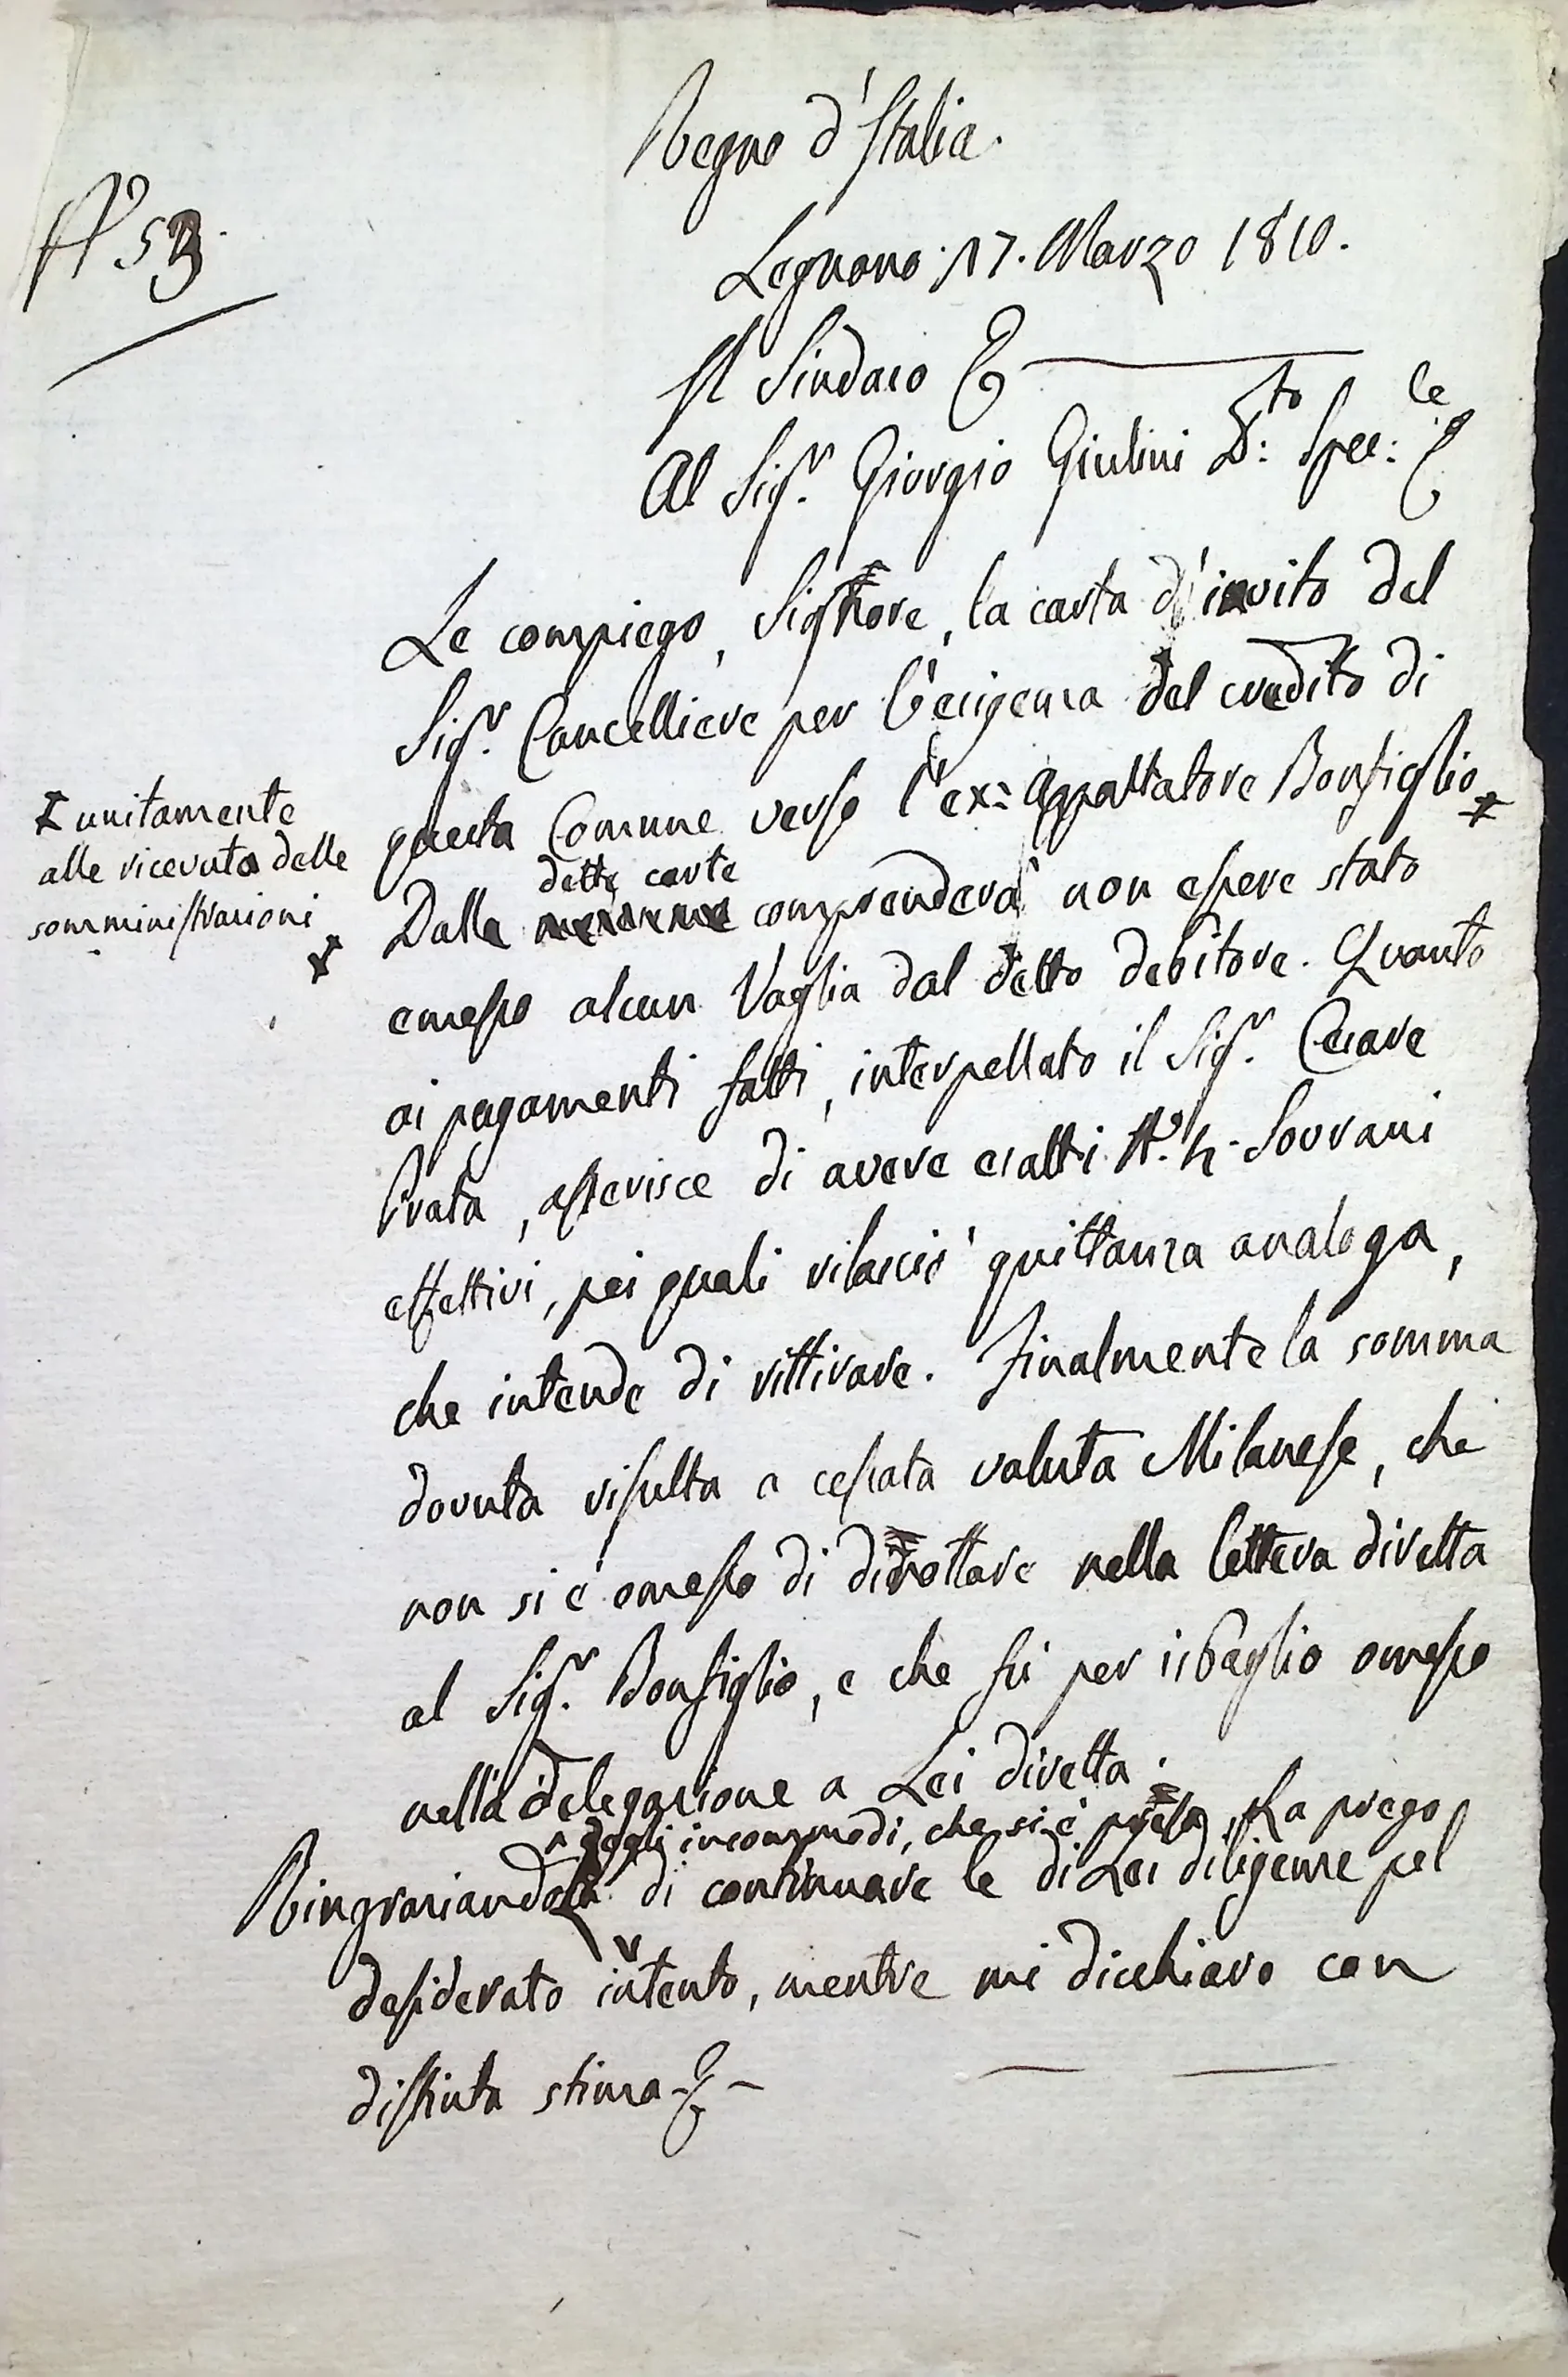 Regno d'Italia.
N.° 53.
Legnano 17. Marzo 1810.
Il Sindaco &
Al Sig.r Giorgio Giulini D.to Spec.le &
Le compiego, Signore, la carta d'invito del
Sig.r Cancelliere per l'esigenza del credito di
questa Comune verso l'ex: Appaltatore Bonfiglio
unitamente
alle ricevute delle
somministrazioni
dette carte
Dalle comprenderà non essere stato
emesso alcun Vaglia dal detto debitore. Quanto
ai pagamenti fatti, interpellato il Sig.r Cesare
Prata, asserisce di avere esatti N.° 4. Sovrani
effettivi, pei quali rilasciò quittanza analoga,
che intende di rittirare. Finalmente la somma
dovuta risulta a cessata valuta Milanese, che
non si è omesso di dinottare nella lettera diretta
al Sig.r Bonfiglio, e che fù per isbaglio omesso
nella delegazione a Lei diretta.
degli incommodi, che si è presa, La prego
Ringraziandola di continuare le di Lei diligenze pel
desiderato intento, mentre mi dichiaro con
distinta stima &